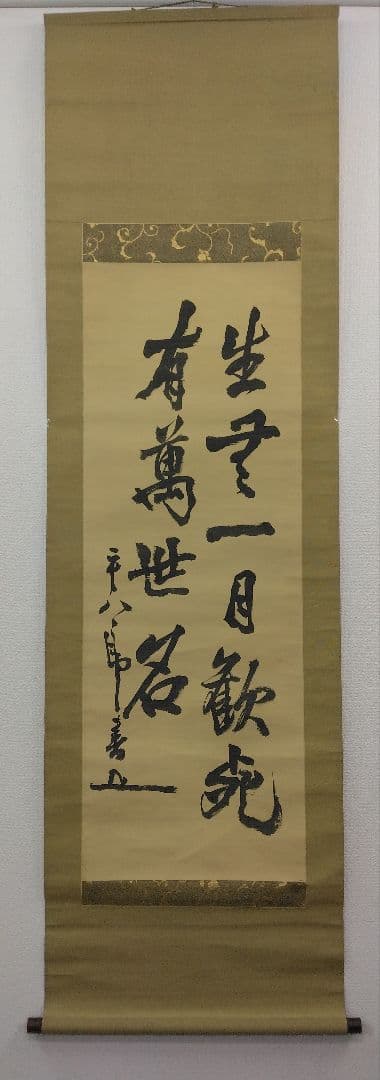 生無一日歡死
有萬世名
平八郎書